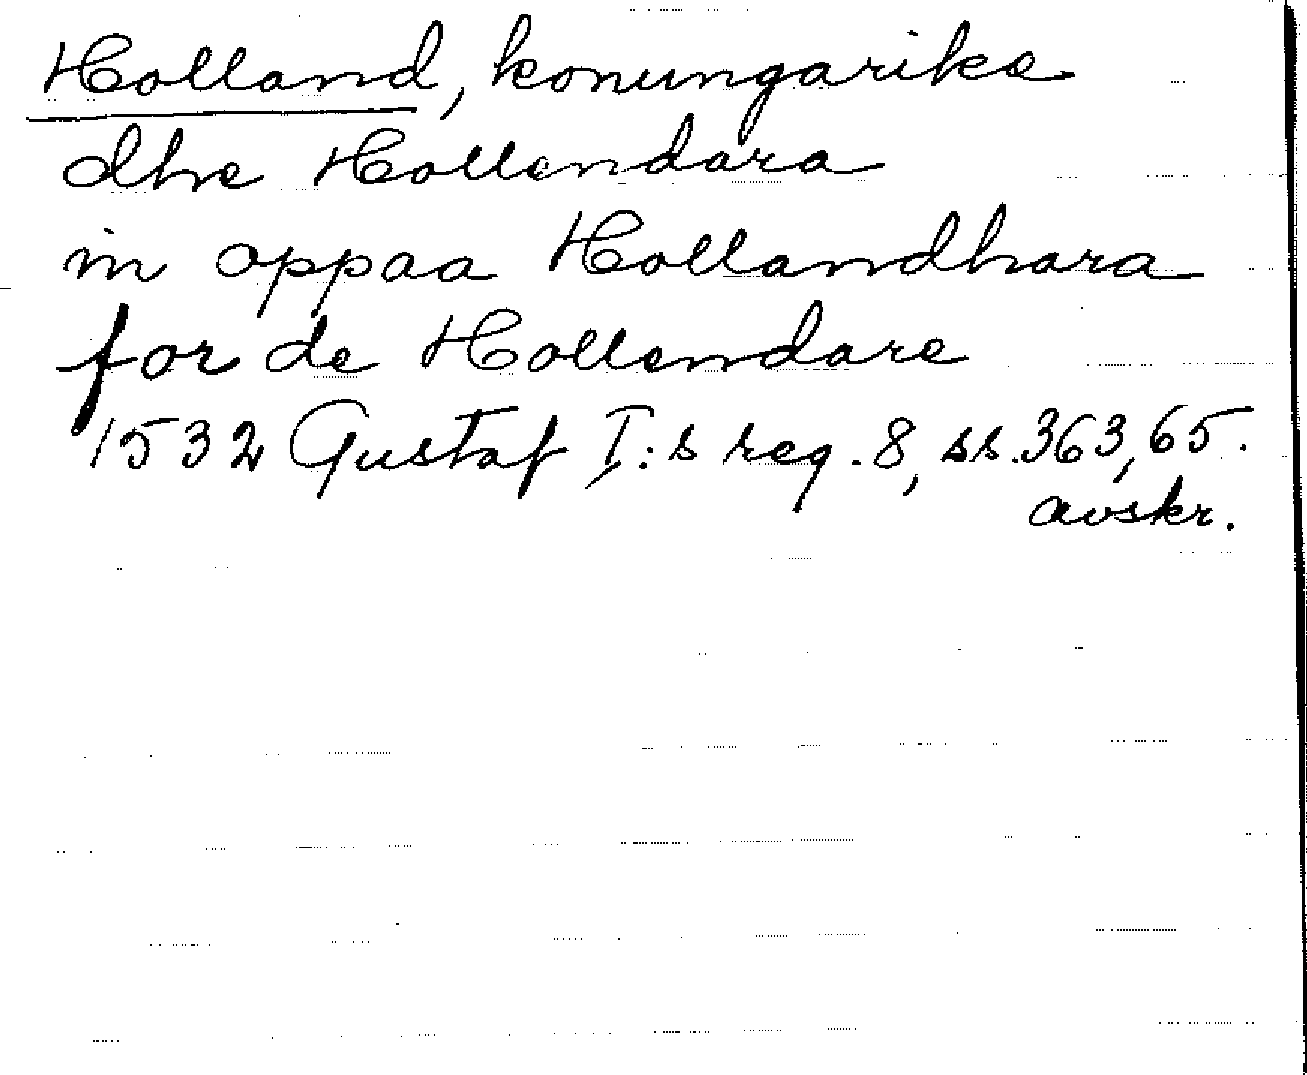 Holland, konungarike
dhe Hollendara
in oppaa Hollandhara
for de Hollendare
1532 Gustaf I:s reg. 8, ss. 363, 65.
avskr.